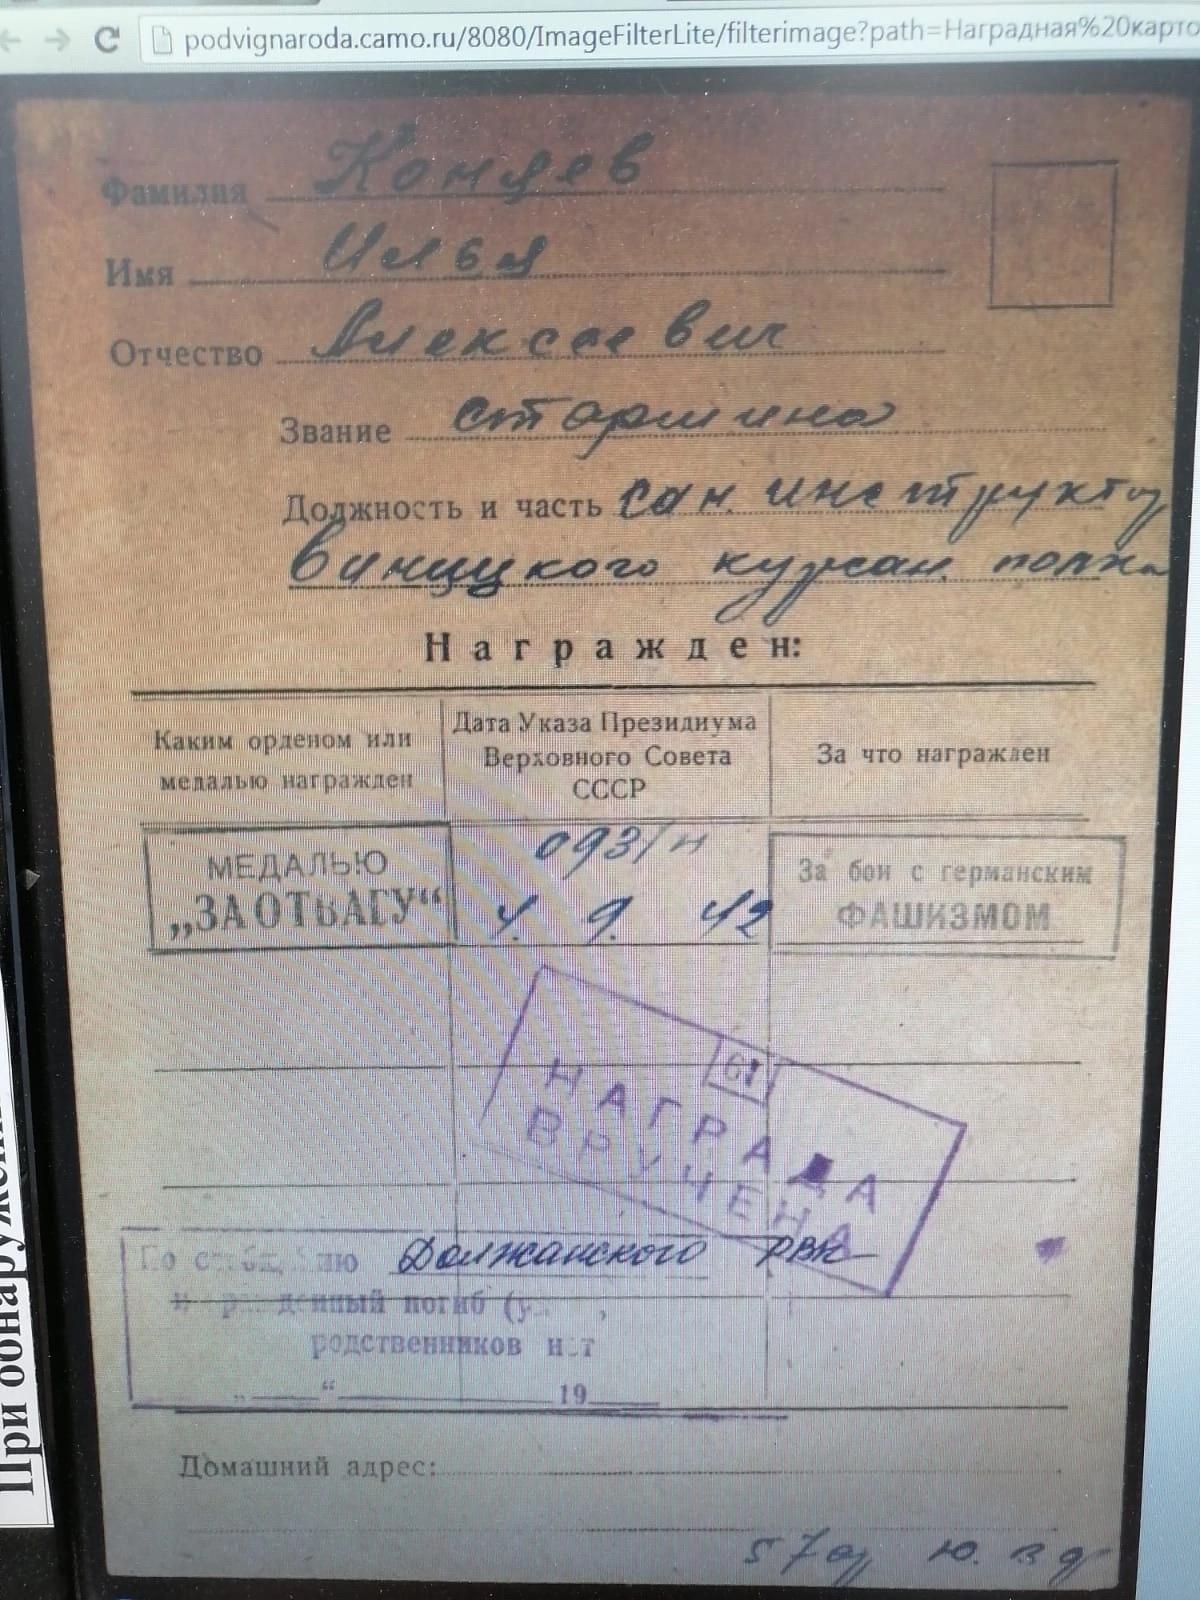 podvignaroda.camo.ru/8080/ImageFilterLite/filterimage?path=Наградная%20карто
Фамилия Концев
Имя Илья
Отчество Алексеевич
Звание старшина
Должность и часть сан. инструктор
Виницкого курсан. полка
Награжден:
Каким орденом или медалью награжден
Дата Указа Президиума Верховного Совета СССР
За что награжден
МЕДАЛЬЮ „ЗА ОТВАГУ“
093/н
4. 9. 42
За бои с германским ФАШИЗМОМ
61
НАГРАДА
ВРУЧЕНА
По Должанского РВК
погиб
родственников нет
„ “ 19
Домашний адрес:
При обнаружени